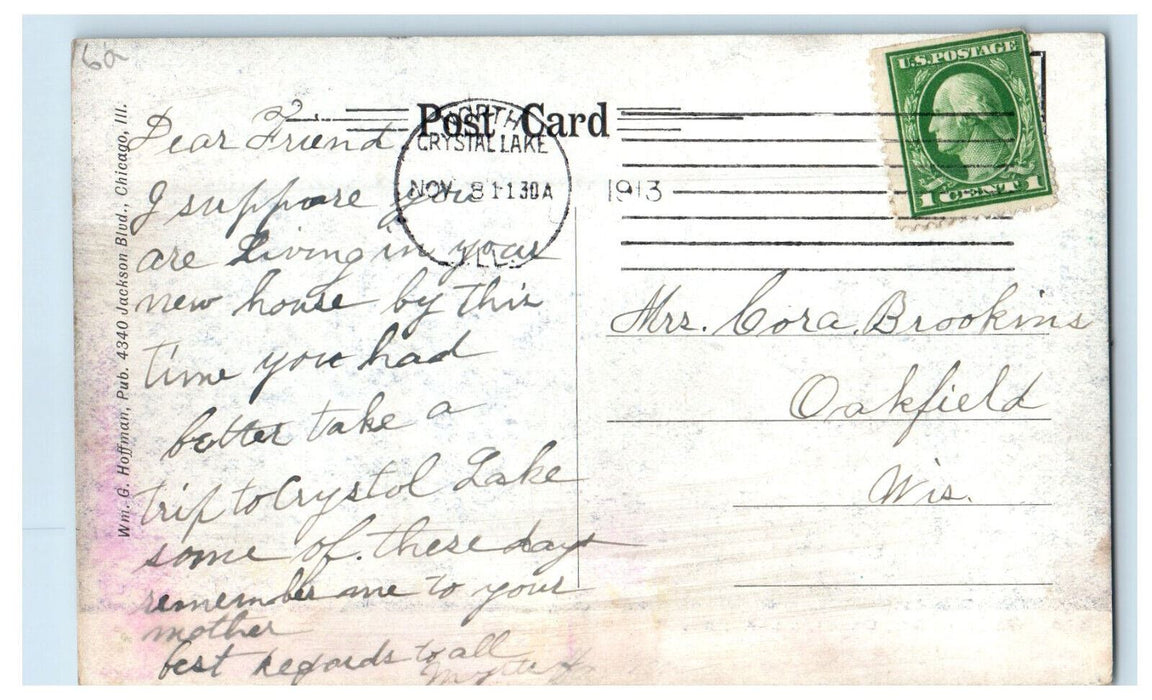 6a
Post Card
NORTH
CRYSTAL LAKE
NOV 8 11 30A
1913
ILL.
U.S. POSTAGE
1 CENT 1
Wm. G. Hoffman, Pub. 4340 Jackson Blvd., Chicago, Ill.
Dear Friend
I suppose you
are living in your
new house by this
time you had
better take a
trip to Crystol Lake
some of these days
remember me to your
mother
best regards to all
Mrs. Cora Brookins
Oakfield
Wis.